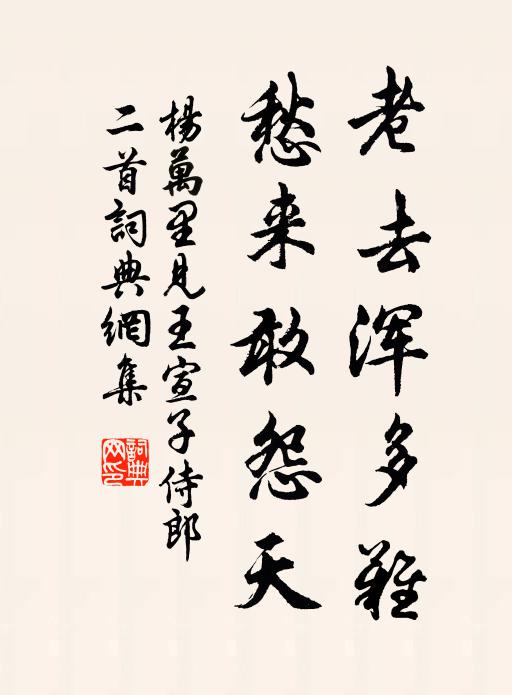 老去浑多難
愁来敢怨天
楊萬里見王宣子侍郎
二首詞典網集
詞典網印